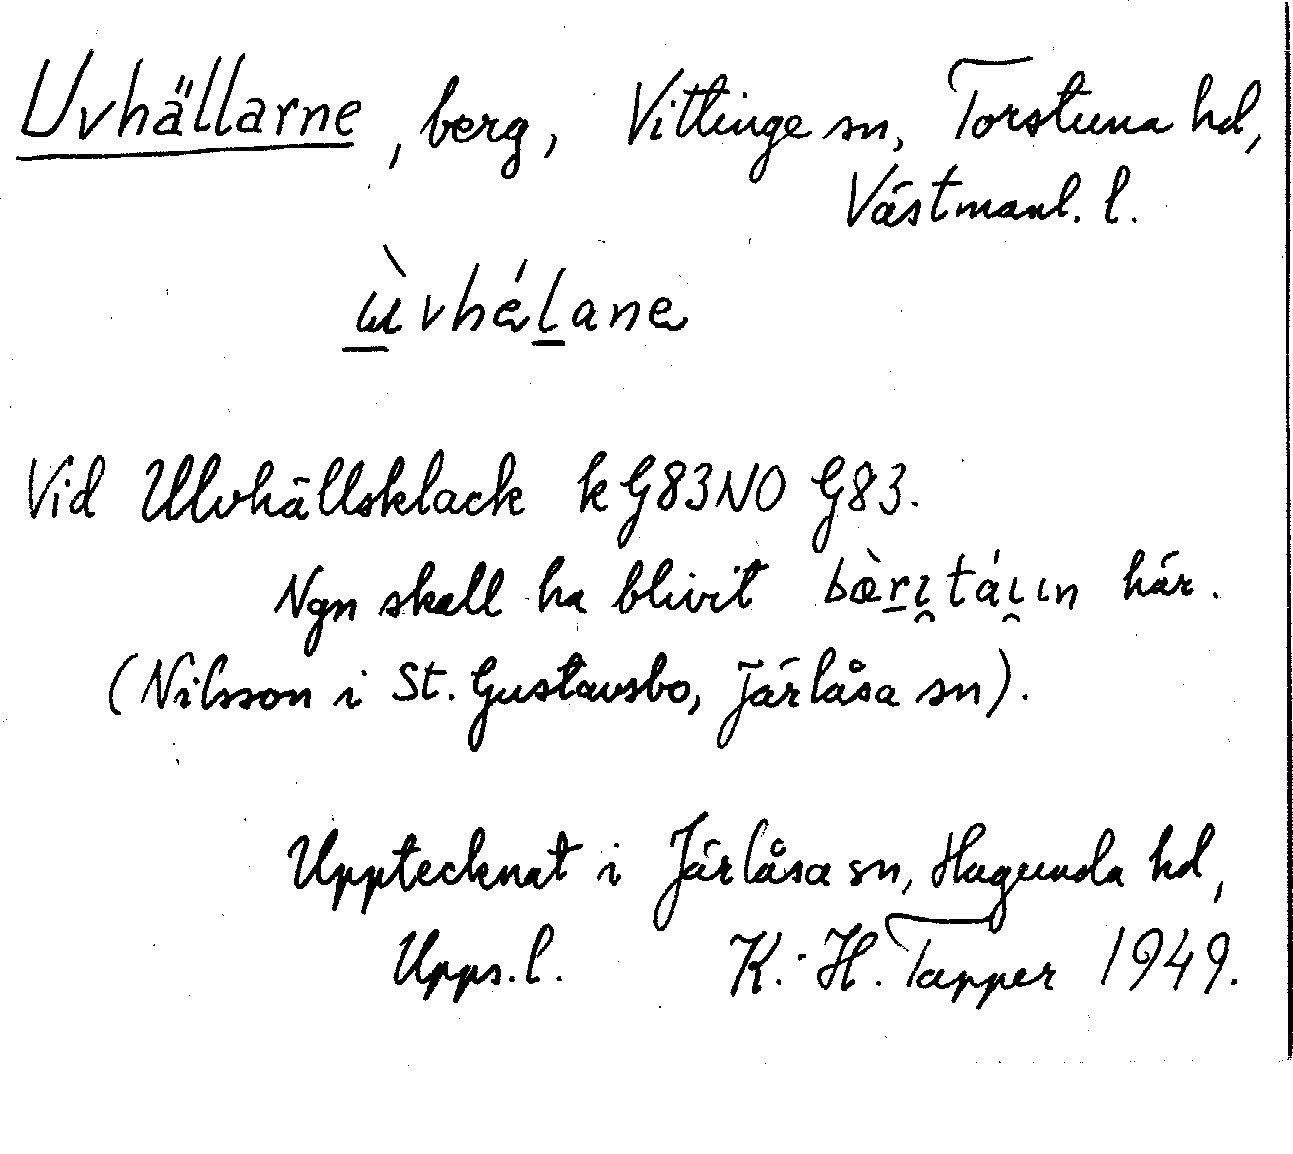 Uvhällarne, berg, Vittinge sn, Torstuna hd,
Västmanl. l.
ɯ̀vhélane
Vid Ulvhällsklack k G83NO G83.
Ngn skall ha blivit bæ̀rı̯táı̯ın här.
(Nilsson i St. Gustavsbo, Järlåsa sn).
Upptecknat i Järlåsa sn, Hagunda hd,
Upps. l. K.-H. Tapper 1949.